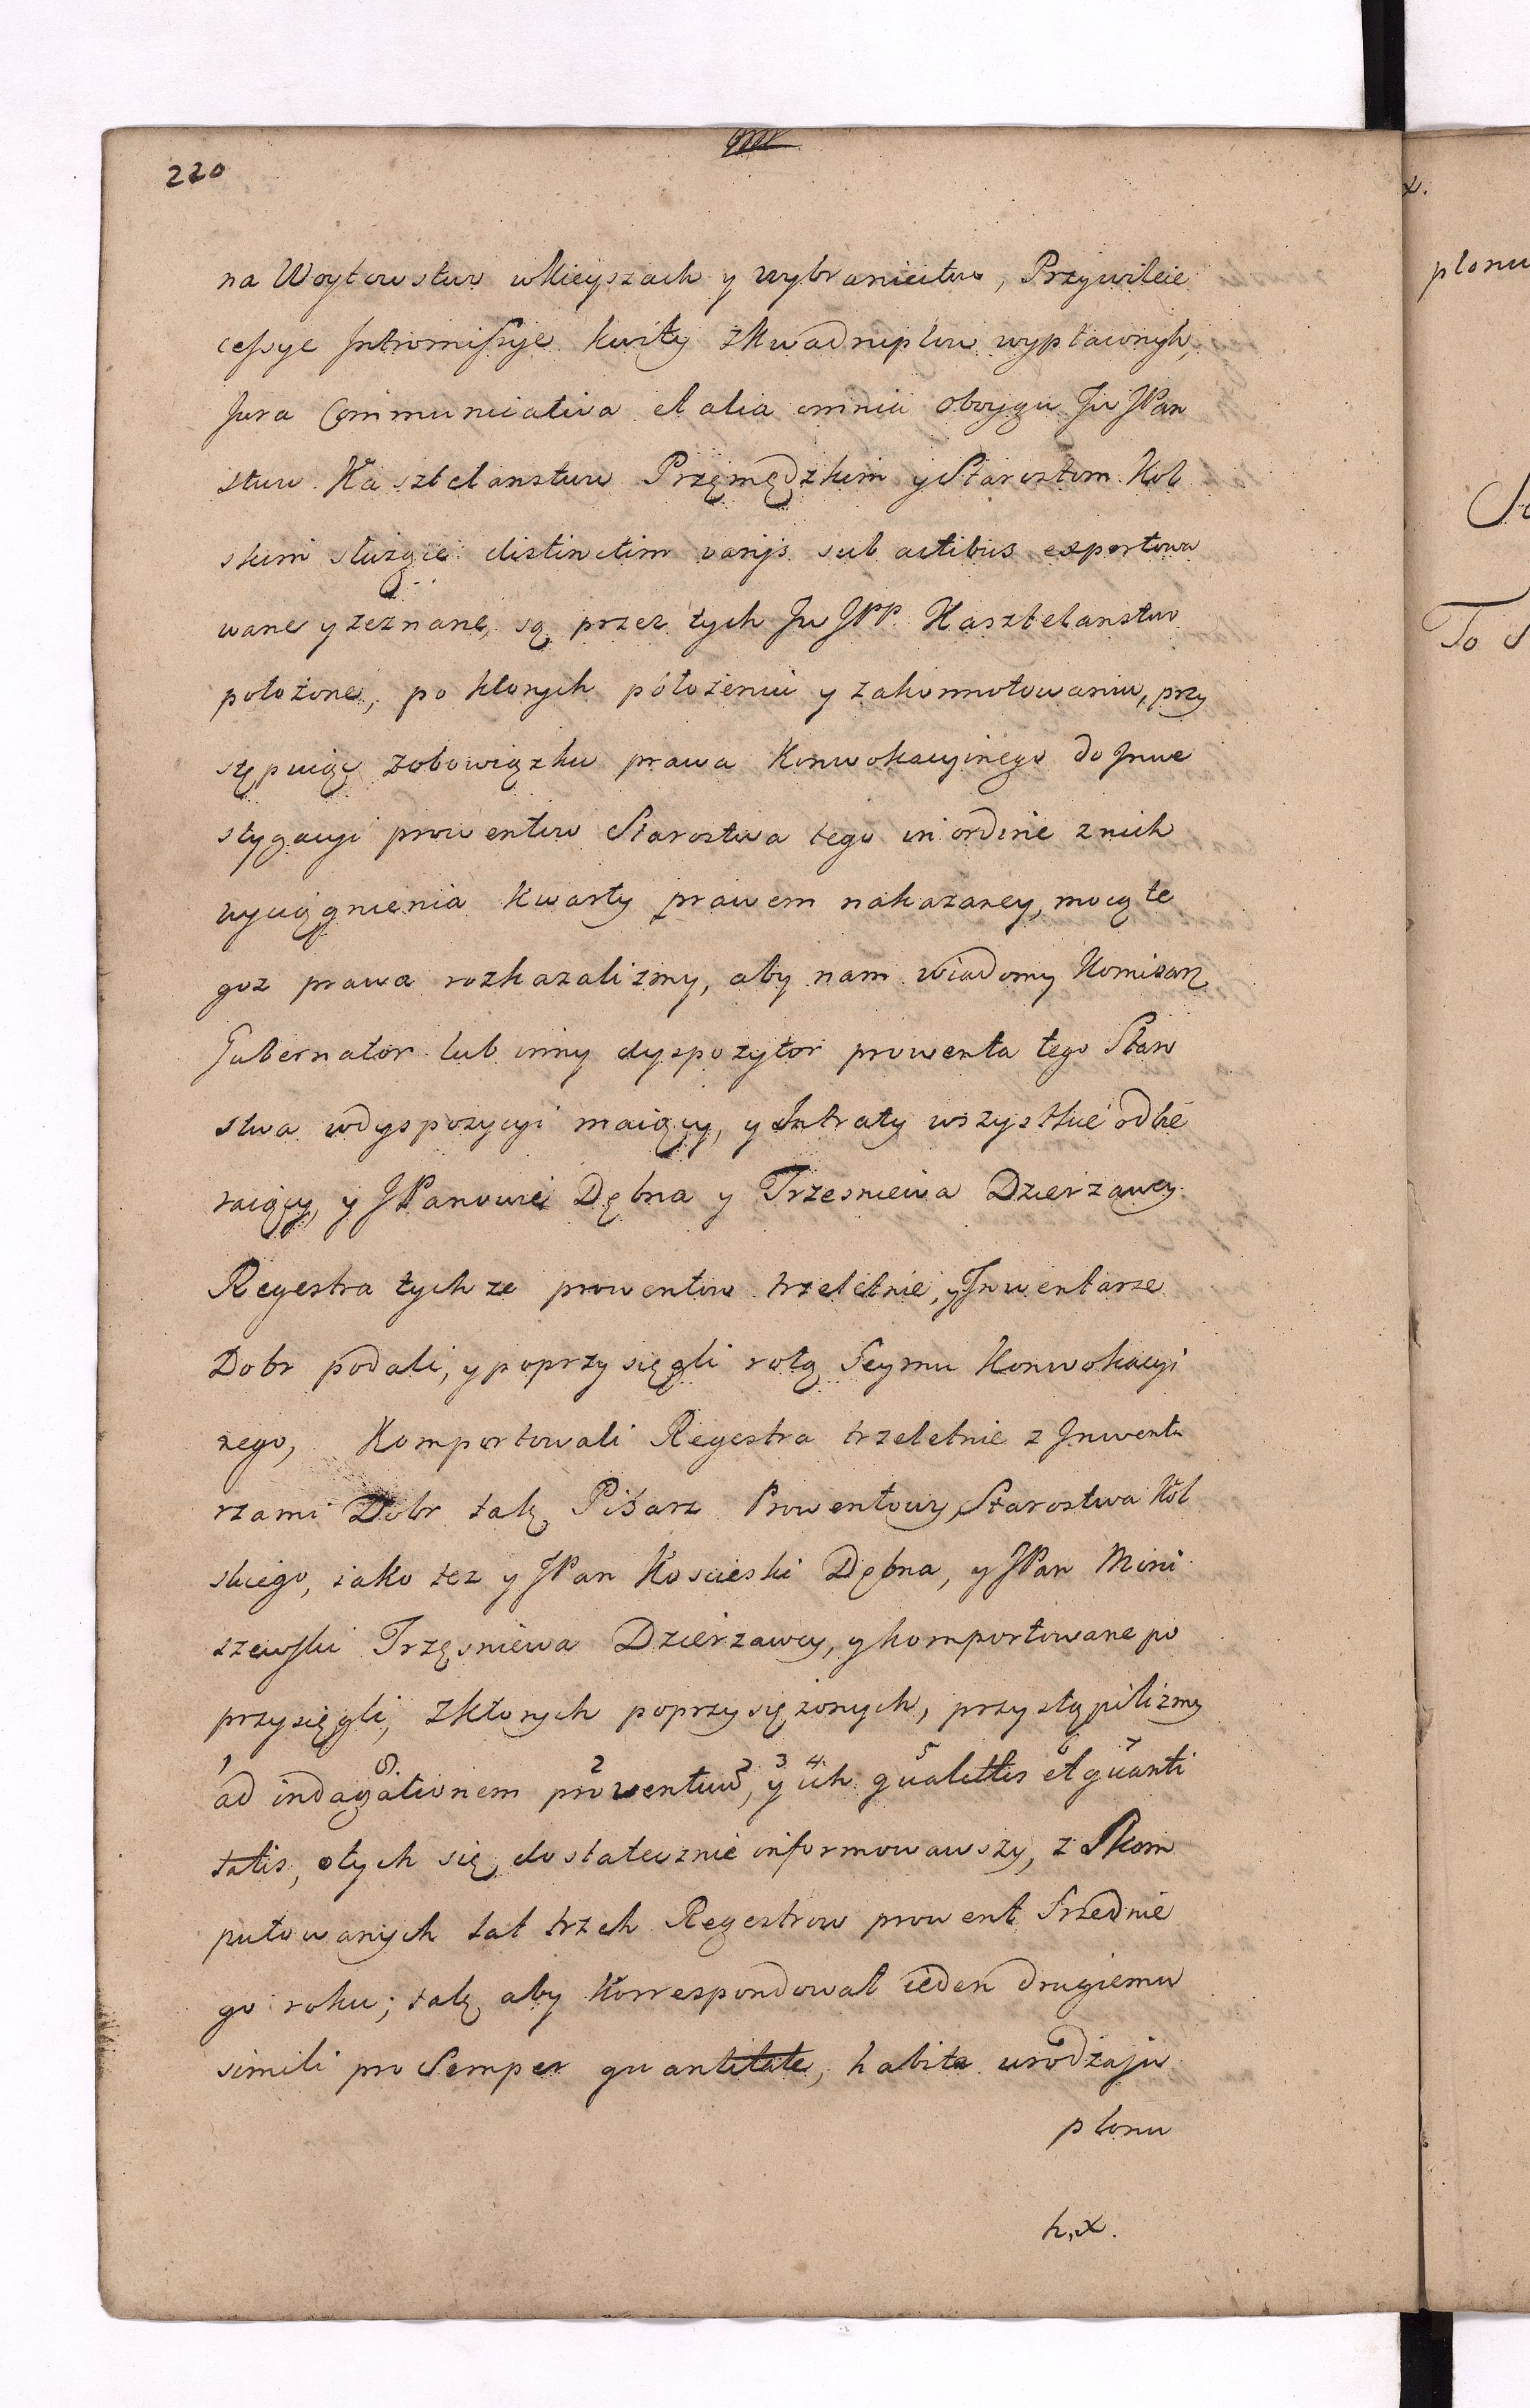 220
na Woytowstwo wKieyszach y wybraniectwo, Przywileie
cessye Intromissye kwity zkwadruplow wypłaconych,
Jura Communicativa et alia omnia oboygu Jw JPan
stwu Kasztelanstwu Przęmędzkim y Starostom Kol
skim służące distinctim varijs sub actibus exportowa
wane y zeznane, są przez tych Jw JPP Kasztelanstwo
położone, po ktorych położeniu y zakonnotowaniu, przy
stępuiąc zobowiązku prawa Konwokacyinego do Inwe
stygacyi prowentow Starostwa tego in ordine znich
wyciągnienia kwarty prawem nakazaney, mocą te
goz prawa rozkazalizmy, aby nam wiadomy Komisarz
Gubernator lub inny dyspozytor prowenta tego Staro
stwa wdyspozycyi maiący, y Intraty wszystkie odbie
raiący, y JPanowie Dębna y Trzesniewa Dzierzawcy
Regestra tychze prowentow trzeletnie, y Inwentarze
Dobr podali, y poprzysięgli rotą Seymu Konwokacyi
nego, Komportowali Regestra trzeletnie z Inwenta
rzami Dobr tak Pisarz Prowentowy Starostwa Kol
skiego, iako tez y JPan Koscieski Dębna, y JPan Mini
szewski Trzęsniewa Dzierzawcy, y komportowane po
przysięgli, Zktorych poprzysiężonych, przystąpilizmy
1 8 2 3 4 5 6 7
ad indagationem prowentuw, y ich qualittis et quanti
tatis, otych się dostatecznie informowawszy, z Skom
putowanych lat trzech Regestrow prowent Srzednie
go roku; tak aby Korrespondował ieden drugiemu
simili pro Semper quantitate, habita urodzaju
plonu
h.x.
x.
plonu
To